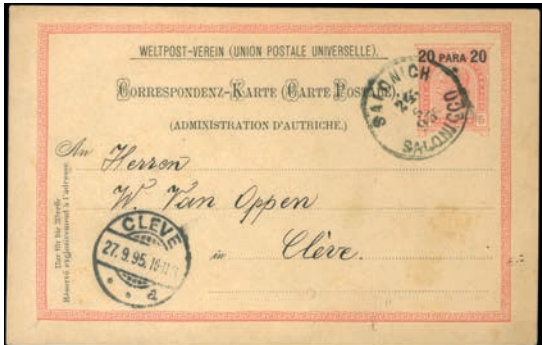 WELTPOST-VEREIN (UNION POSTALE UNIVERSELLE).
20 PARA 20
Correspondenz-Karte (Carte Postale)
(ADMINISTRATION D'AUTRICHE.)
SALONICH
24
SALONICCO
5
An Herren
W. Van Oppen
in Clève.
CLEVE
27.9.95.
a
Nur für die Adresse
Réservé exclusivement à l'adresse